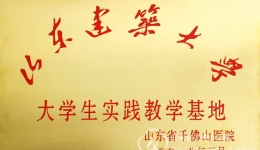 山东建筑大学
大学生实践教学基地
山东省千佛山医院